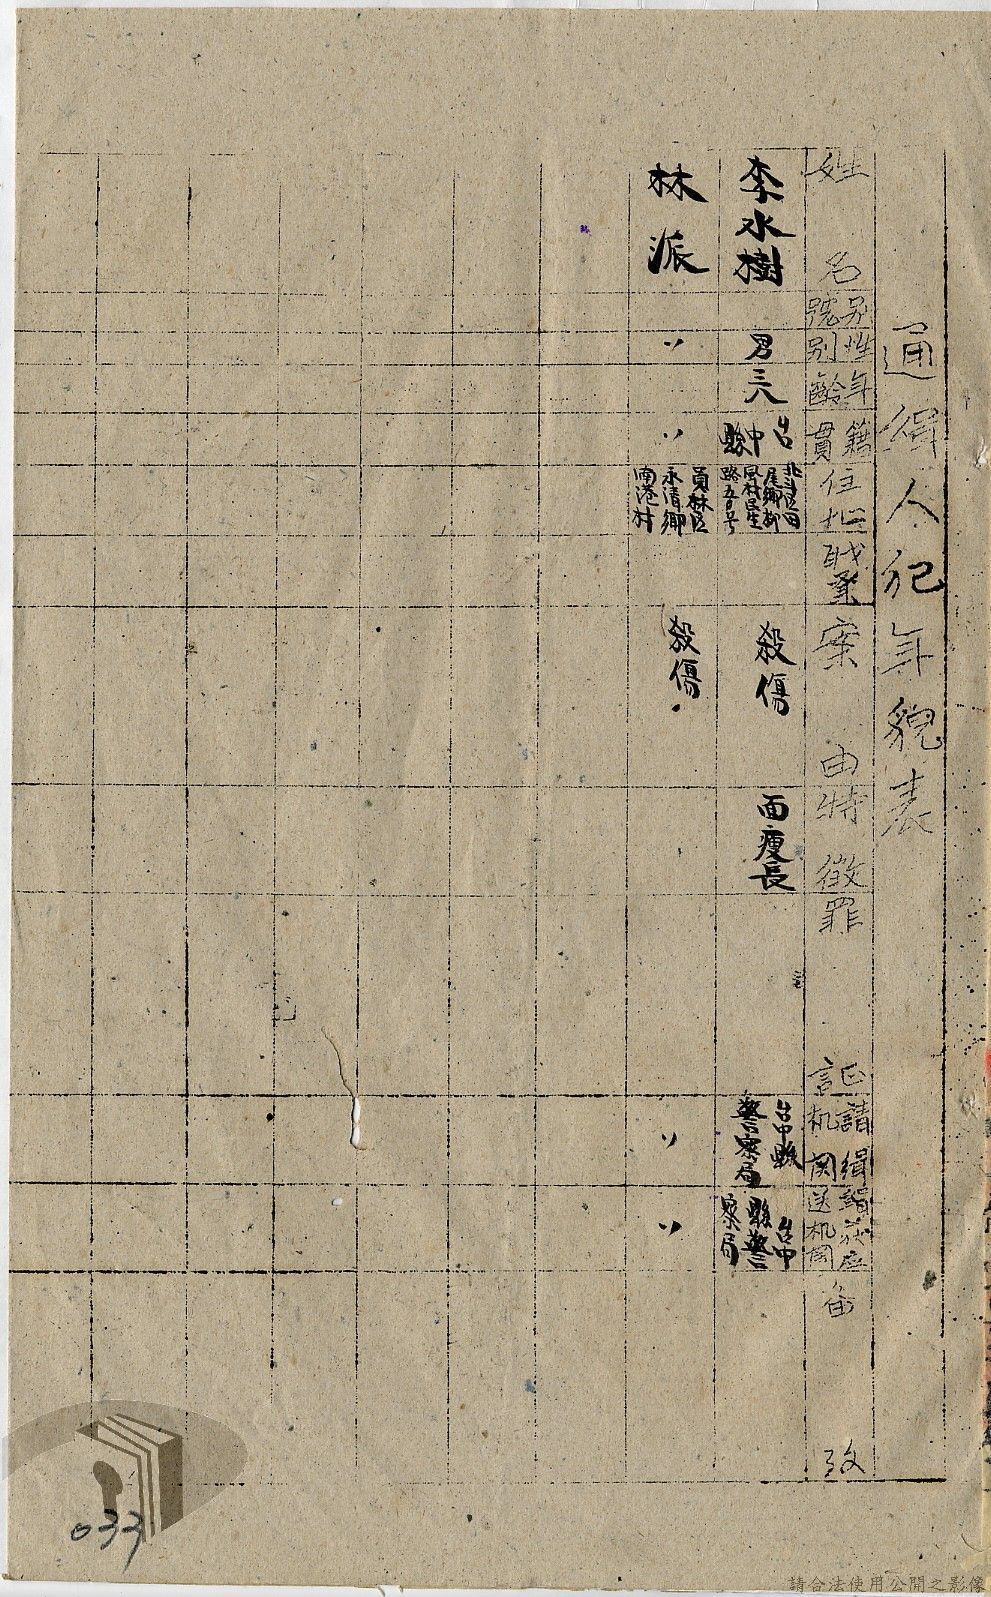 通緝人犯年貌表
姓名
別號
性別
年齡
籍貫
住址
職業
案由
特徵
罪証
請緝机関
緝獲應送机関
備攷
李水樹
男
三八
台中縣
北斗區田
尾鄉柳
鳳村民生
路五百号
殺傷
面瘦長
台中縣
警察局
台中
縣警
察局
林派
〃
〃
員林區
永清鄉
南港村
殺傷.
〃
〃
033
請合法使用公開之影像